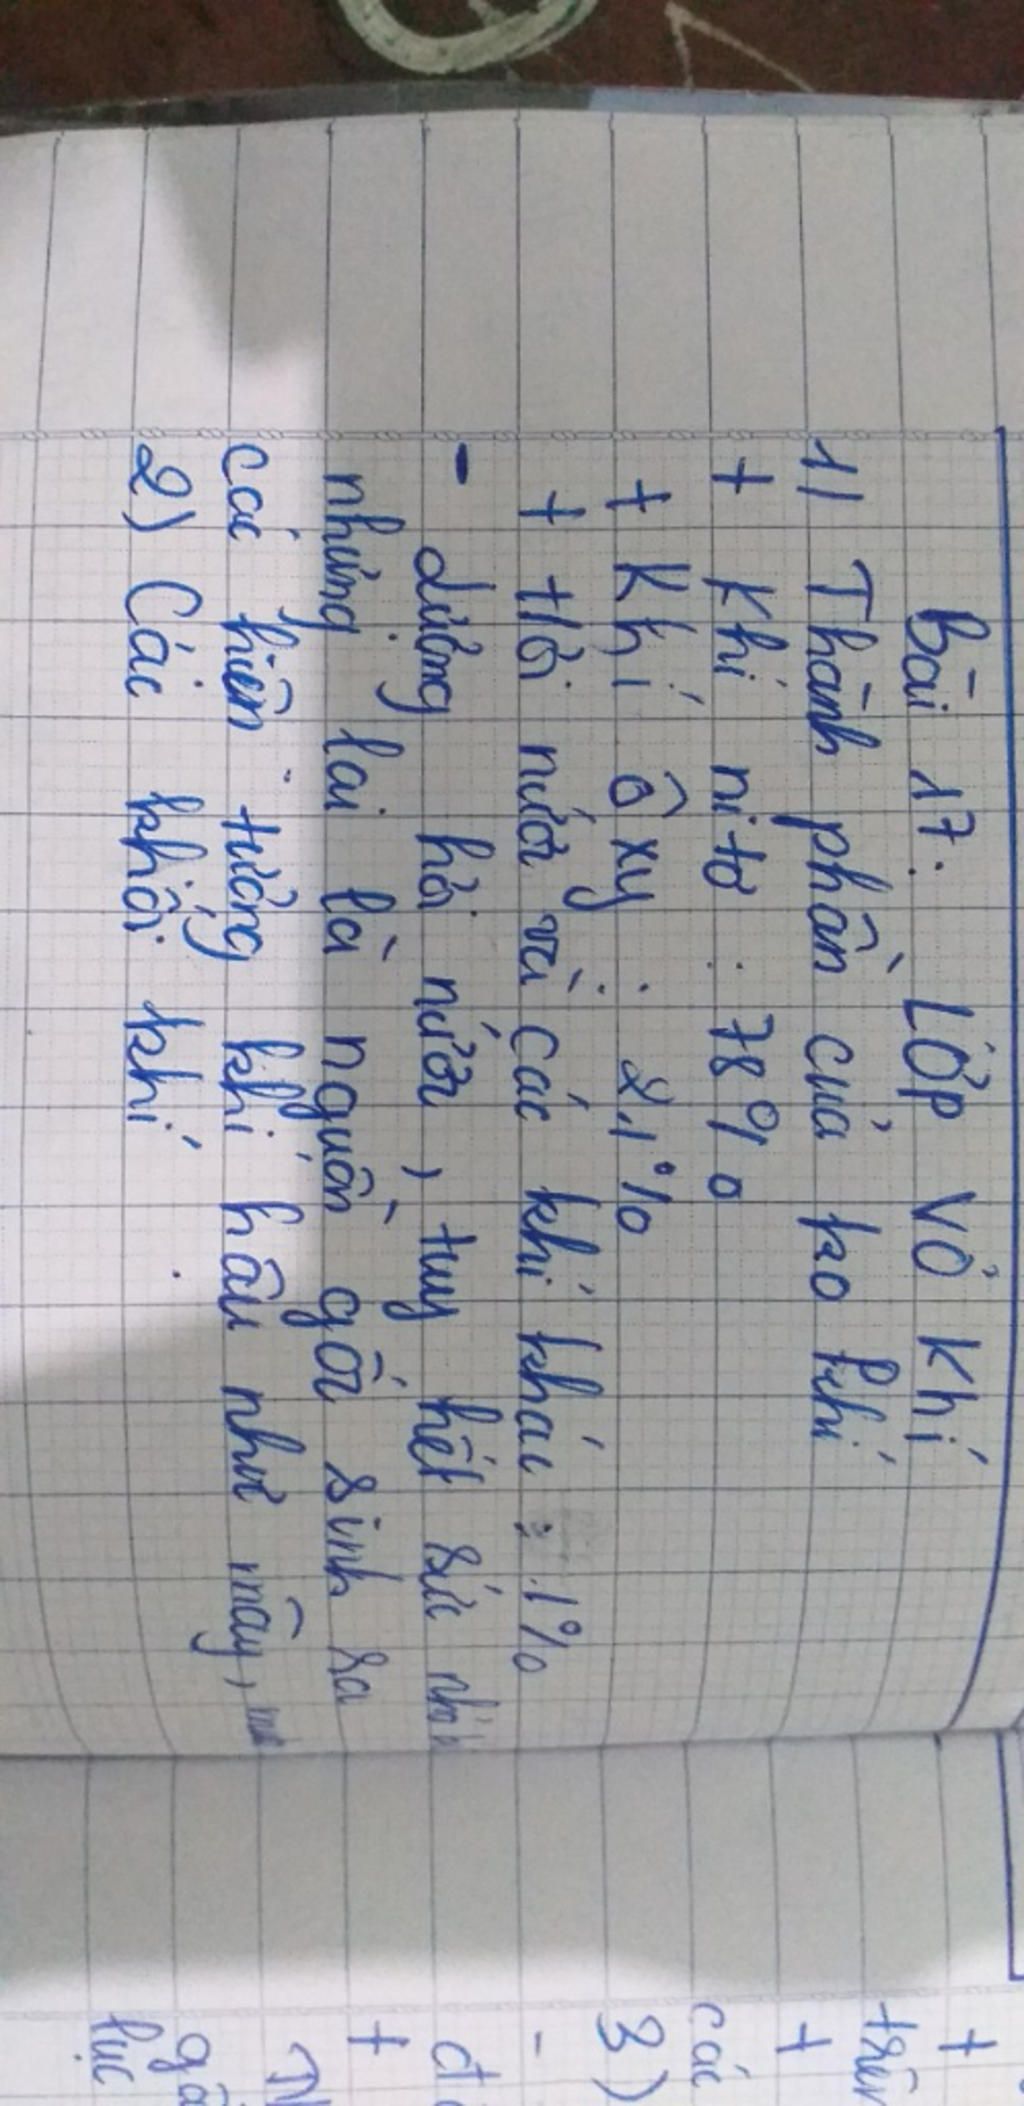 Bài 17. Lớp vỏ khí
1) Thành phần của ko khí
+ Khí nitơ : 78%
+ Khí ôxy : 21%
+ Hơi nước và các khí khác : 1%
- Lượng hơi nước, tuy hết sức nhỏ
nhưng lại là nguồn gốc sinh ra
các hiện tượng khí hậu như mây,
2) Các khối khí
+
trên
+
các
3)
-
+
lục